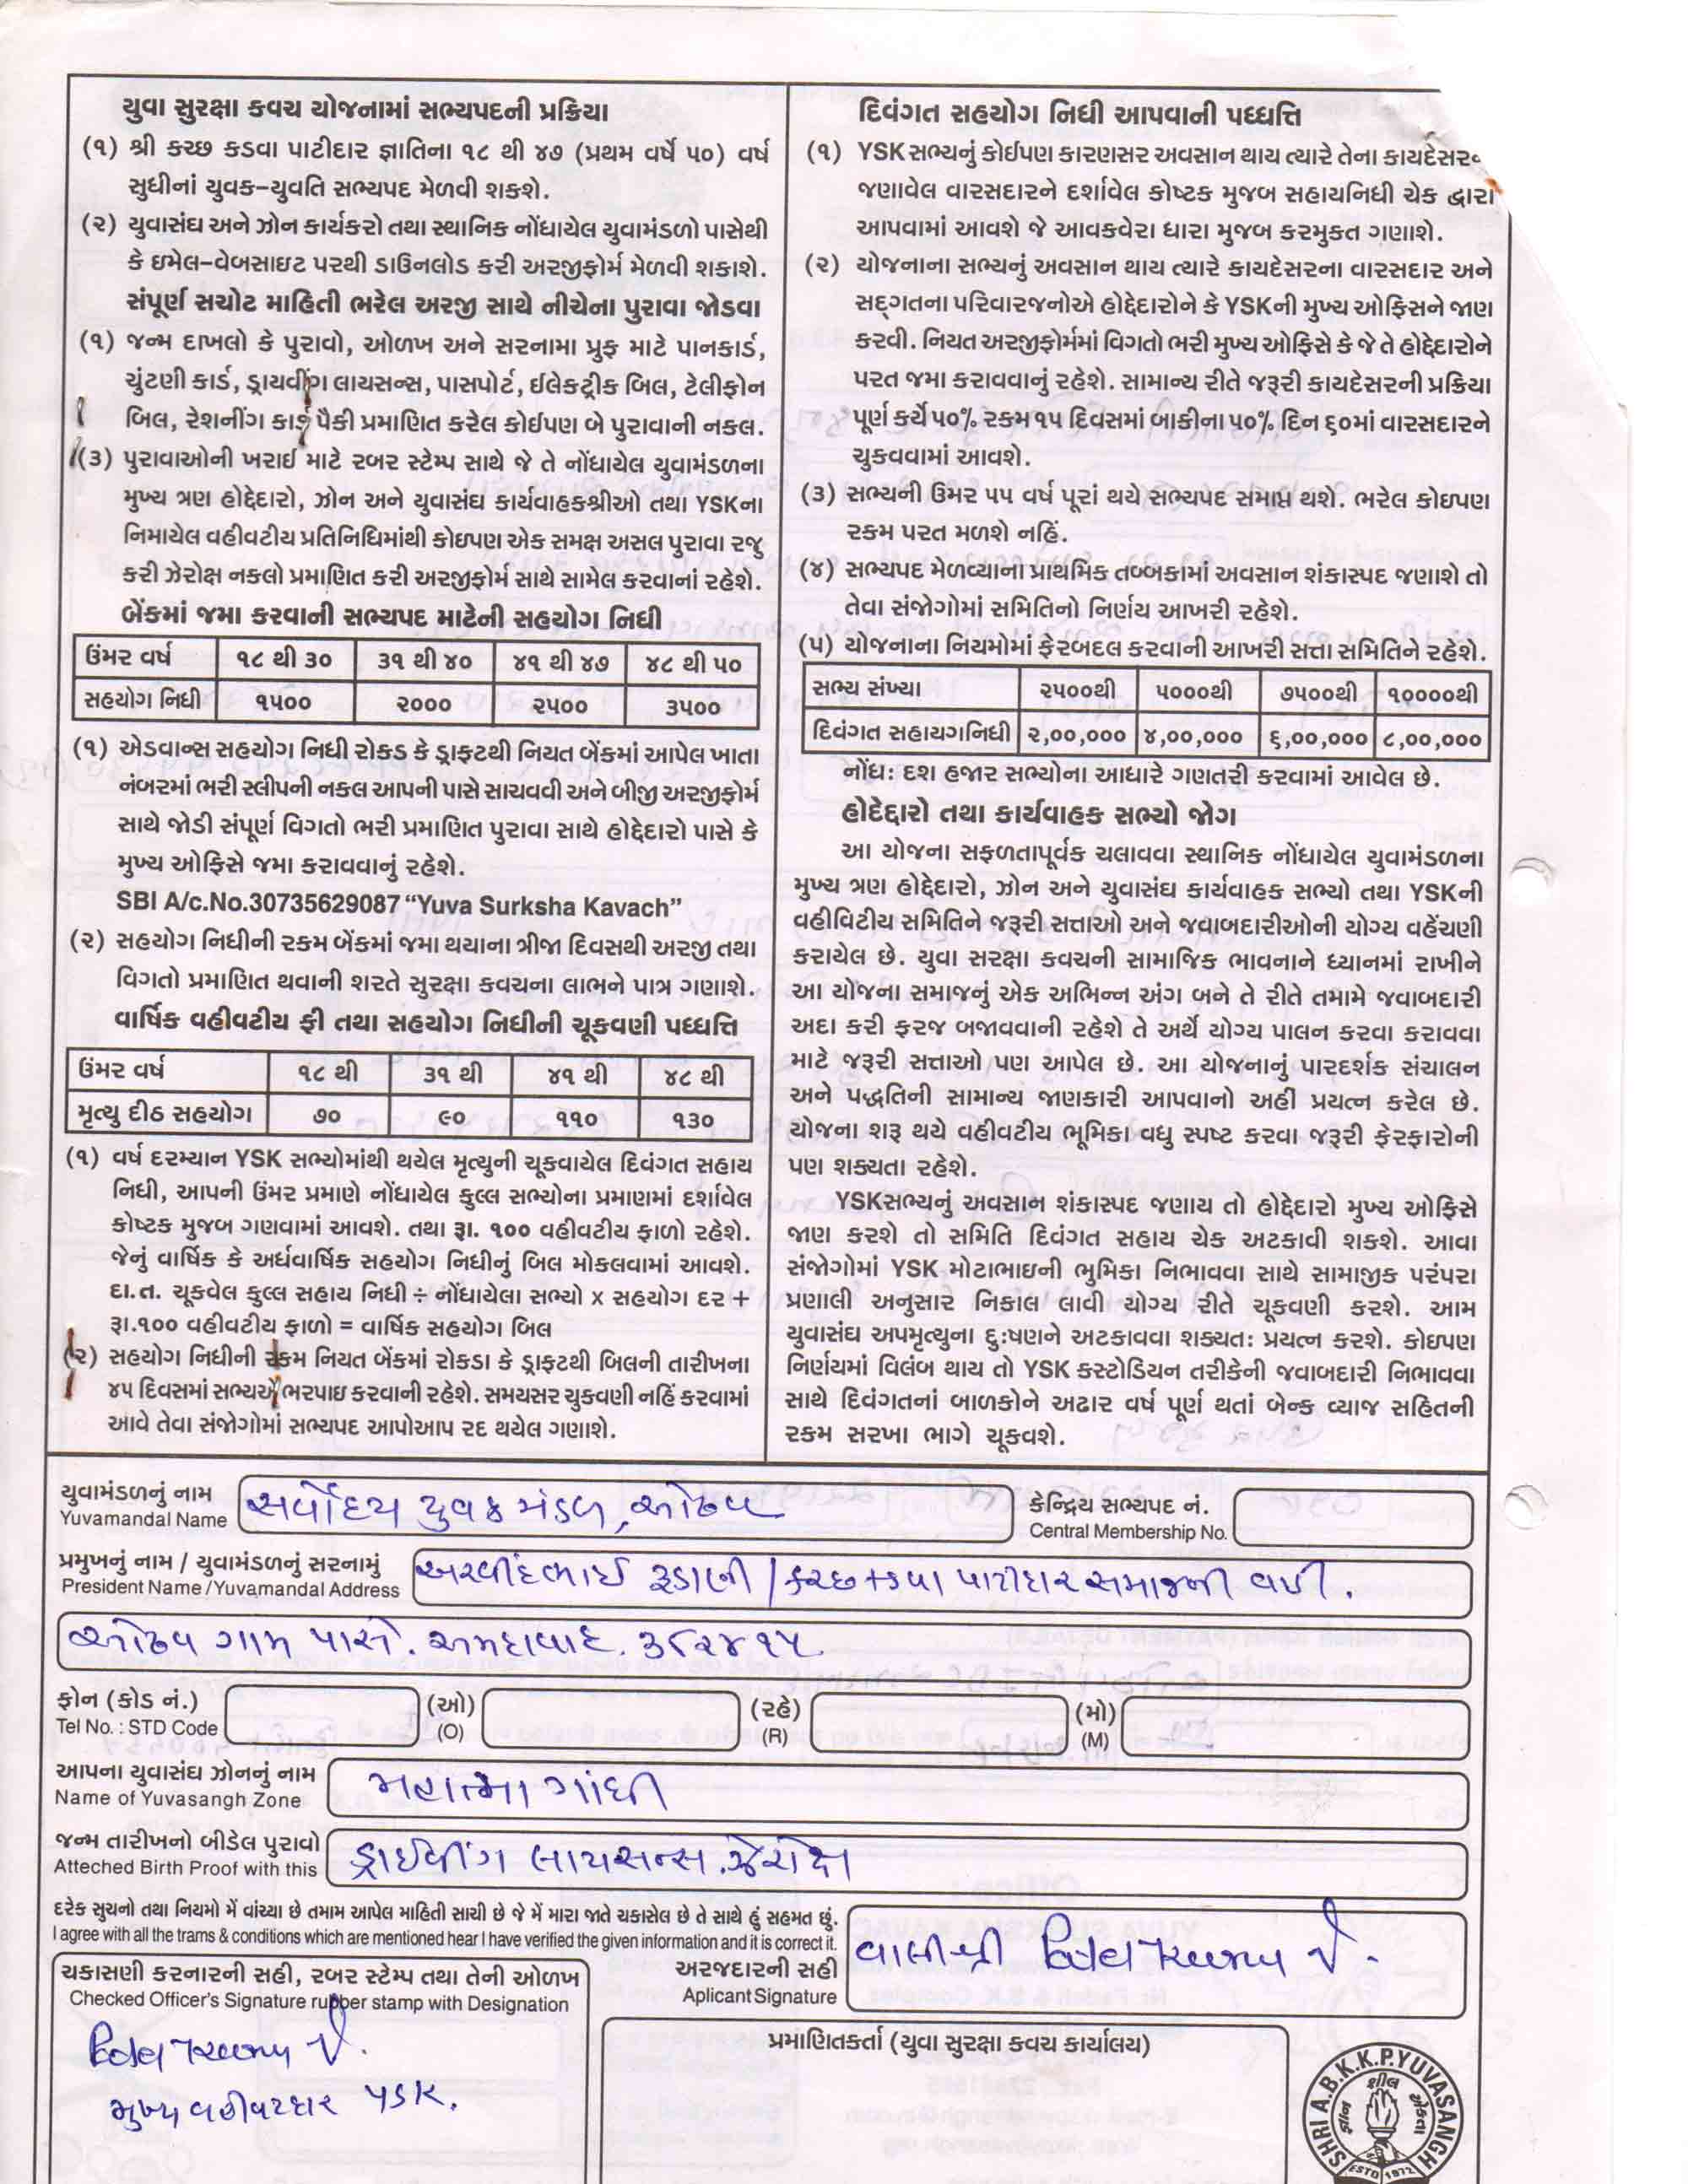 યુવા સુરક્ષા કવચ યોજનામાં સભ્યપદની પ્રક્રિયા
(૧) શ્રી કચ્છ કડવા પાટીદાર જ્ઞાતિના ૧૮ થી ૪૭ (પ્રથમ વર્ષે ૫૦) વર્ષ
સુધીનાં યુવક-યુવતિ સભ્યપદ મેળવી શકશે.
(૨) યુવાસંઘ અને ઝોન કાર્યકરો તથા સ્થાનિક નોંધાયેલ યુવામંડળો પાસેથી
કે ઇમેલ-વેબસાઇટ પરથી ડાઉનલોડ કરી અરજીફોર્મ મેળવી શકાશે.
સંપૂર્ણ સચોટ માહિતી ભરેલ અરજી સાથે નીચેના પુરાવા જોડવા
(૧) જન્મ દાખલો કે પુરાવો, ઓળખ અને સરનામા પ્રુફ માટે પાનકાર્ડ,
ચુંટણી કાર્ડ, ડ્રાયવીંગ લાયસન્સ, પાસપોર્ટ, ઈલેકટ્રીક બિલ, ટેલીફોન
બિલ, રેશનીંગ કાર્ડ પૈકી પ્રમાણિત કરેલ કોઈપણ બે પુરાવાની નકલ.
(૩) પુરાવાઓની ખરાઈ માટે રબર સ્ટેમ્પ સાથે જે તે નોંધાયેલ યુવામંડળના
મુખ્ય ત્રણ હોદ્દેદારો, ઝોન અને યુવાસંઘ કાર્યવાહકશ્રીઓ તથા YSKના
નિમાયેલ વહીવટીય પ્રતિનિધિમાંથી કોઇપણ એક સમક્ષ અસલ પુરાવા રજુ
કરી ઝેરોક્ષ નકલો પ્રમાણિત કરી અરજીફોર્મ સાથે સામેલ કરવાનાં રહેશે.
બેંકમાં જમા કરવાની સભ્યપદ માટેની સહયોગ નિધી
ઉંમર વર્ષ ૧૮ થી ૩૦ ૩૧ થી ૪૦ ૪૧ થી ૪૭ ૪૮ થી ૫૦
સહયોગ નિધી ૧૫૦૦ ૨૦૦૦ ૨૫૦૦ ૩૫૦૦
(૧) એડવાન્સ સહયોગ નિધી રોકડ કે ડ્રાફટથી નિયત બેંકમાં આપેલ ખાતા
નંબરમાં ભરી સ્લીપની નકલ આપની પાસે સાચવવી અને બીજી અરજીફોર્મ
સાથે જોડી સંપૂર્ણ વિગતો ભરી પ્રમાણિત પુરાવા સાથે હોદ્દેદારો પાસે કે
મુખ્ય ઓફિસે જમા કરાવવાનું રહેશે.
SBI A/c.No.30735629087 “Yuva Surksha Kavach”
(૨) સહયોગ નિધીની રકમ બેંકમાં જમા થયાના ત્રીજા દિવસથી અરજી તથા
વિગતો પ્રમાણિત થવાની શરતે સુરક્ષા કવચના લાભને પાત્ર ગણાશે.
વાર્ષિક વહીવટીય ફી તથા સહયોગ નિધીની ચૂકવણી પધ્ધતિ
ઉંમર વર્ષ ૧૮ થી ૩૧ થી ૪૧ થી ૪૮ થી
મૃત્યુ દીઠ સહયોગ ૭૦ ૯૦ ૧૧૦ ૧૩૦
(૧) વર્ષ દરમ્યાન YSK સભ્યોમાંથી થયેલ મૃત્યુની ચૂકવાયેલ દિવંગત સહાય
નિધી, આપની ઉંમર પ્રમાણે નોંધાયેલ કુલ્લ સભ્યોના પ્રમાણમાં દર્શાવેલ
કોષ્ટક મુજબ ગણવામાં આવશે. તથા રૂા. ૧૦૦ વહીવટીય ફાળો રહેશે.
જેનું વાર્ષિક કે અર્ધવાર્ષિક સહયોગ નિધીનું બિલ મોકલવામાં આવશે.
દા.ત. ચૂકવેલ કુલ્લ સહાય નિધી ÷ નોંધાયેલા સભ્યો x સહયોગ દર +
રૂા.૧૦૦ વહીવટીય ફાળો = વાર્ષિક સહયોગ બિલ
(૨) સહયોગ નિધીની રકમ નિયત બેંકમાં રોકડા કે ડ્રાફટથી બિલની તારીખના
૪૫ દિવસમાં સભ્યએ ભરપાઇ કરવાની રહેશે. સમયસર ચુકવણી નહિં કરવામાં
આવે તેવા સંજોગોમાં સભ્યપદ આપોઆપ રદ થયેલ ગણાશે.
દિવંગત સહયોગ નિધી આપવાની પધ્ધત્તિ
(૧) YSK સભ્યનું કોઈપણ કારણસર અવસાન થાય ત્યારે તેના કાયદેસર
જણાવેલ વારસદારને દર્શાવેલ કોષ્ટક મુજબ સહાયનિધી ચેક દ્વારા
આપવામાં આવશે જે આવકવેરા ધારા મુજબ કરમુક્ત ગણાશે.
(૨) યોજનાના સભ્યનું અવસાન થાય ત્યારે કાયદેસરના વારસદાર અને
સદ્ગતના પરિવારજનોએ હોદ્દેદારોને કે YSKની મુખ્ય ઓફિસને જાણ
કરવી. નિયત અરજીફોર્મમાં વિગતો ભરી મુખ્ય ઓફિસે કે જે તે હોદ્દેદારોને
પરત જમા કરાવવાનું રહેશે. સામાન્ય રીતે જરૂરી કાયદેસરની પ્રક્રિયા
પૂર્ણ કર્યે ૫૦% રકમ ૧૫ દિવસમાં બાકીના ૫૦% દિન ૬૦માં વારસદારને
ચુકવવામાં આવશે.
(૩) સભ્યની ઉંમર ૫૫ વર્ષ પૂરાં થયે સભ્યપદ સમાપ્ત થશે. ભરેલ કોઇપણ
રકમ પરત મળશે નહિં.
(૪) સભ્યપદ મેળવ્યાના પ્રાથમિક તબ્બકામાં અવસાન શંકાસ્પદ જણાશે તો
તેવા સંજોગોમાં સમિતિનો નિર્ણય આખરી રહેશે.
(૫) યોજનાના નિયમોમાં ફેરબદલ કરવાની આખરી સત્તા સમિતિને રહેશે.
સભ્ય સંખ્યા ૨૫૦૦થી ૫૦૦૦થી ૭૫૦૦થી ૧૦૦૦૦થી
દિવંગત સહાયગનિધી ૨,૦૦,૦૦૦ ૪,૦૦,૦૦૦ ૬,૦૦,૦૦૦ ૮,૦૦,૦૦૦
નોંધ: દશ હજાર સભ્યોના આધારે ગણતરી કરવામાં આવેલ છે.
હોદેદ્દારો તથા કાર્યવાહક સભ્યો જોગ
આ યોજના સફળતાપૂર્વક ચલાવવા સ્થાનિક નોંધાયેલ યુવામંડળના
મુખ્ય ત્રણ હોદ્દેદારો, ઝોન અને યુવાસંઘ કાર્યવાહક સભ્યો તથા YSKની
વહીવિટીય સમિતિને જરૂરી સત્તાઓ અને જવાબદારીઓની યોગ્ય વહેંચણી
કરાયેલ છે. યુવા સરક્ષા કવચની સામાજિક ભાવનાને ધ્યાનમાં રાખીને
આ યોજના સમાજનું એક અભિન્ન અંગ બને તે રીતે તમામે જવાબદારી
અદા કરી ફરજ બજાવવાની રહેશે તે અર્થે યોગ્ય પાલન કરવા કરાવવા
માટે જરૂરી સત્તાઓ પણ આપેલ છે. આ યોજનાનું પારદર્શક સંચાલન
અને પદ્ધતિની સામાન્ય જાણકારી આપવાનો અહીં પ્રયત્ન કરેલ છે.
યોજના શરૂ થયે વહીવટીય ભૂમિકા વધુ સ્પષ્ટ કરવા જરૂરી ફેરફારોની
પણ શક્યતા રહેશે.
YSKસભ્યનું અવસાન શંકાસ્પદ જણાય તો હોદ્દેદારો મુખ્ય ઓફિસે
જાણ કરશે તો સમિતિ દિવંગત સહાય ચેક અટકાવી શકશે. આવા
સંજોગોમાં YSK મોટાભાઇની ભુમિકા નિભાવવા સાથે સામાજીક પરંપરા
પ્રણાલી અનુસાર નિકાલ લાવી યોગ્ય રીતે ચૂકવણી કરશે. આમ
યુવાસંઘ અપમૃત્યુના દુ:ષણને અટકાવવા શક્યત: પ્રયત્ન કરશે. કોઇપણ
નિર્ણયમાં વિલંબ થાય તો YSK કસ્ટોડિયન તરીકેની જવાબદારી નિભાવવા
સાથે દિવંગતનાં બાળકોને અઢાર વર્ષ પૂર્ણ થતાં બેન્ક વ્યાજ સહિતની
રકમ સરખા ભાગે ચૂકવશે.
યુવામંડળનું નામ સર્વોદય યુવક મંડળ, ઓઢવ કેન્દ્રિય સભ્યપદ નં.
Yuvamandal Name Central Membership No.
પ્રમુખનું નામ / યુવામંડળનું સરનામું અરવીંદભાઈ રૂડાણી / કચ્છ કડવા પાટીદાર સમાજની વાડી.
President Name /Yuvamandal Address
ઓઢવ ગામ પાસે. અમદાવાદ. ૩૮૨૪૧૫
ફોન (કોડ નં.) (ઓ) (રહે) (મો)
Tel No. : STD Code (O) (R) (M)
આપના યુવાસંઘ ઝોનનું નામ મહાત્મા ગાંધી
Name of Yuvasangh Zone
જન્મ તારીખનો બીડેલ પુરાવો ડ્રાઈવીંગ લાયસન્સ ઝેરોક્ષ
Atteched Birth Proof with this
દરેક સુચનો તથા નિયમો મેં વાંચ્યા છે તમામ આપેલ માહિતી સાચી છે જે મેં મારા જાતે ચકાસેલ છે તે સાથે હું સહમત છું.
I agree with all the trams & conditions which are mentioned hear I have verified the given information and it is correct it.
ચકાસણી કરનારની સહી, રબર સ્ટેમ્પ તથા તેની ઓળખ
Checked Officer's Signature rubber stamp with Designation
અરજદારની સહી વાલીશ્રી Patel
Aplicant Signature
Patel
મુખ્ય વહીવટદાર YSK.
પ્રમાણિતકર્તા (યુવા સુરક્ષા કવચ કાર્યાલય)
SHRI A.B.K.K.P.YUVASANGH
શીલ
જ્ઞાન એકતા
ESTD 1972